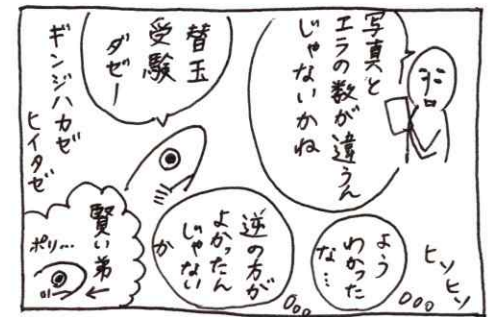 写真と
エラの数が違うん
じゃないかね
替玉
受験
ダゼー
ギンジハカゼ
ヒイタゼ
ヒソヒソ
ようわかった
な…
逆の方が
よかったん
じゃない
か
賢い弟
ポリ…